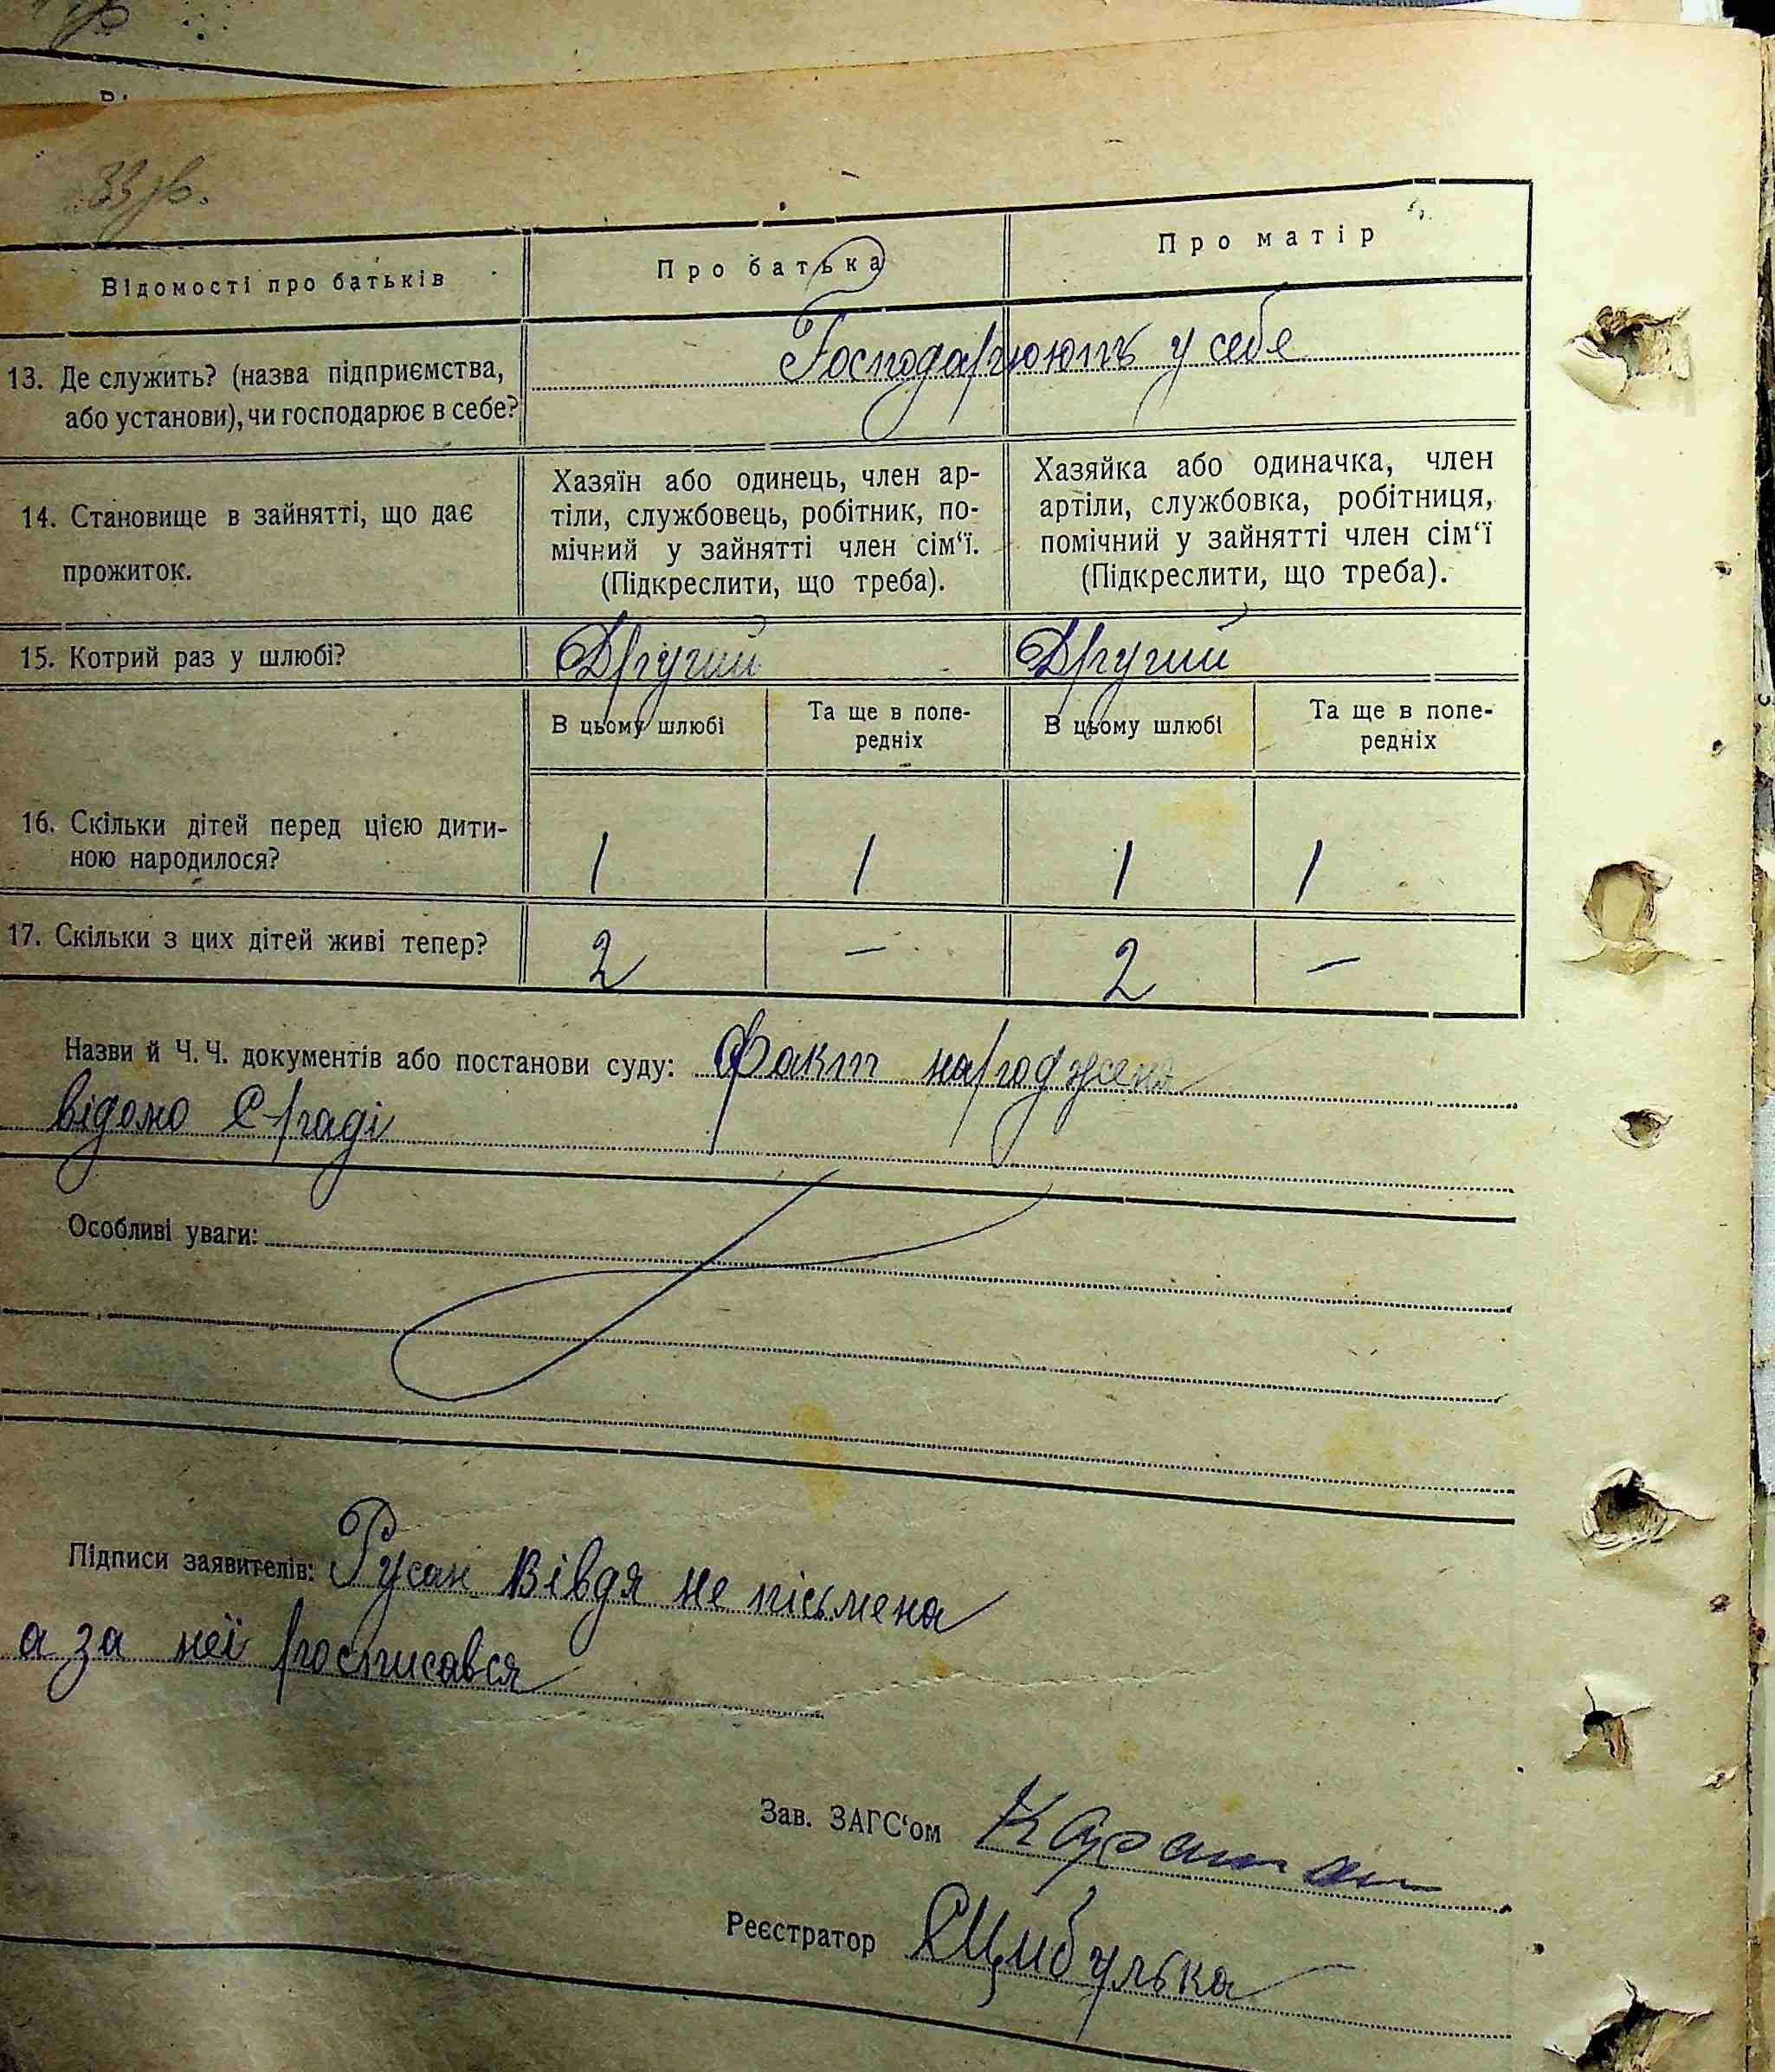 Відомості про батьків
Про батька
Про матір
13. Де служить? (назва підприємства,
або установи), чи господарює в себе?
Господарюють у себе
14. Становище в зайнятті, що дає
прожиток.
Хазяїн або одинець, член ар-
тіли, службовець, робітник, по-
мічний у зайнятті член сім‘ї.
(Підкреслити, що треба).
Хазяйка або одиначка, член
артіли, службовка, робітниця,
помічний у зайнятті член сім‘ї
(Підкреслити, що треба).
15. Котрий раз у шлюбі?
Другий
Другий
В цьому шлюбі
Та ще в попе-
редніх
В цьому шлюбі
Та ще в попе-
редніх
16. Скільки дітей перед цією дити-
ною народилося?
1 1 1 1
17. Скільки з цих дітей живі тепер?
2 – 2 –
Назви й Ч. Ч. документів або постанови суду: Факт народженя
відомо С-раді
Особливі уваги:
Підписи заявителів: Русан Вівдя не пісьмена
а за неї росписався
Зав. ЗАГС‘ом
Реєстратор Цибулька